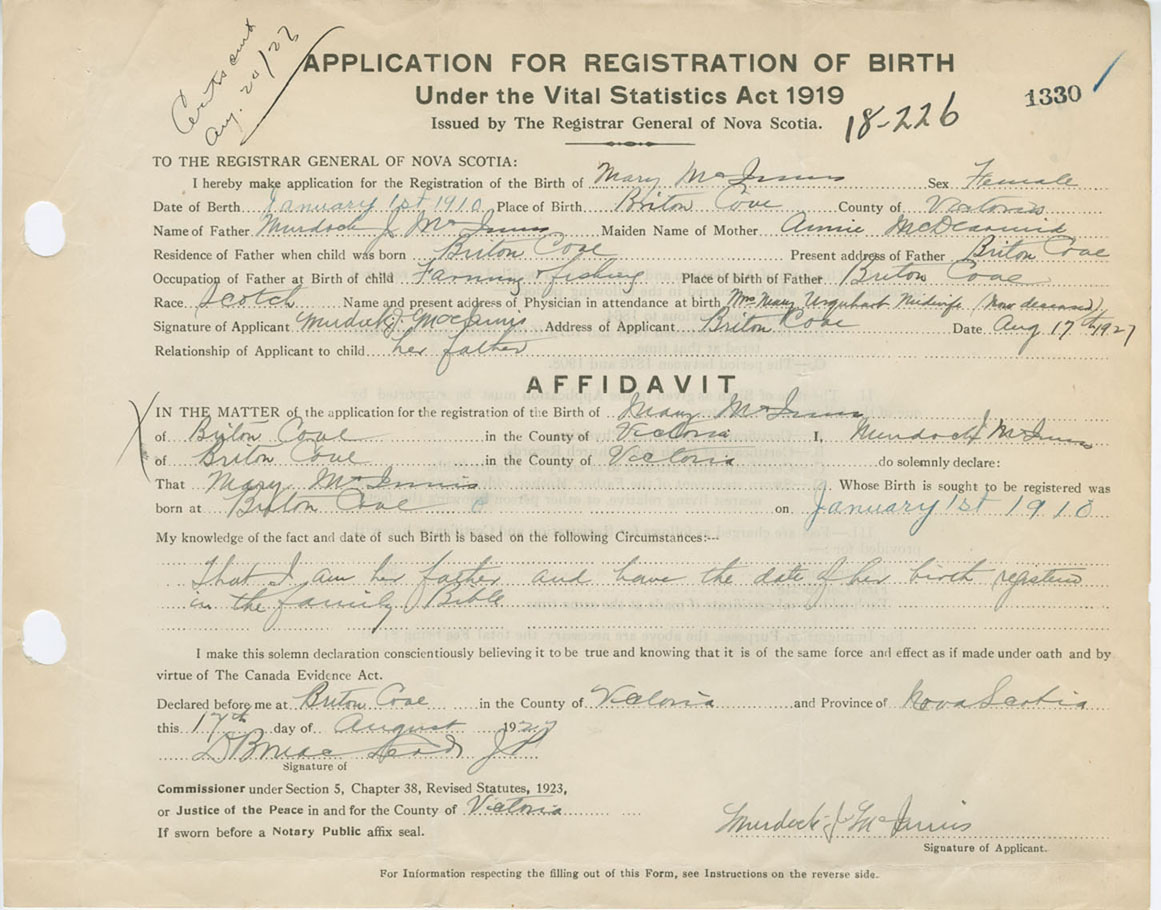 Cert sent
Aug. 20/27
APPLICATION FOR REGISTRATION OF BIRTH
Under the Vital Statistics Act 1919
1330
Issued by The Registrar General of Nova Scotia.
18-226
TO THE REGISTRAR GENERAL OF NOVA SCOTIA:
I hereby make application for the Registration of the Birth of Mary McInnis Sex Female
Date of Berth January 1st 1910 Place of Birth Briton Cove County of Victoria
Name of Father Murdoch J McInnis Maiden Name of Mother Annie McDearmid
Residence of Father when child was born Briton Cove Present address of Father Briton Cove
Occupation of Father at Birth of child Farming & fishing Place of birth of Father Briton Cove
Race Scotch Name and present address of Physician in attendance at birth Mrs Mary Urquhart Midwife (Now deceased)
Signature of Applicant Murdock J McInnis Address of Applicant Briton Cove Date Aug 17th 1927
Relationship of Applicant to child her father
AFFIDAVIT
IN THE MATTER of the application for the registration of the Birth of Mary McInnis
of Briton Cove in the County of Victoria I, Murdoch J McInnis
of Briton Cove in the County of Victoria do solemnly declare:
That Mary McInnis Whose Birth is sought to be registered was
born at Briton Cove on January 1st 1910
My knowledge of the fact and date of such Birth is based on the following Circumstances:--
That I am her father and have the date of her birth register
in the family Bible
I make this solemn declaration conscientiously believing it to be true and knowing that it is of the same force and effect as if made under oath and by
virtue of The Canada Evidence Act.
Declared before me at Briton Cove in the County of Victoria and Province of Nova Scotia
this 17th day of August 1927
J P
Signature of
Commissioner under Section 5, Chapter 38, Revised Statutes, 1923,
or Justice of the Peace in and for the County of Victoria
If sworn before a Notary Public affix seal.
Murdock J McInnis
Signature of Applicant.
For Information respecting the filling out of this Form, see Instructions on the reverse side.